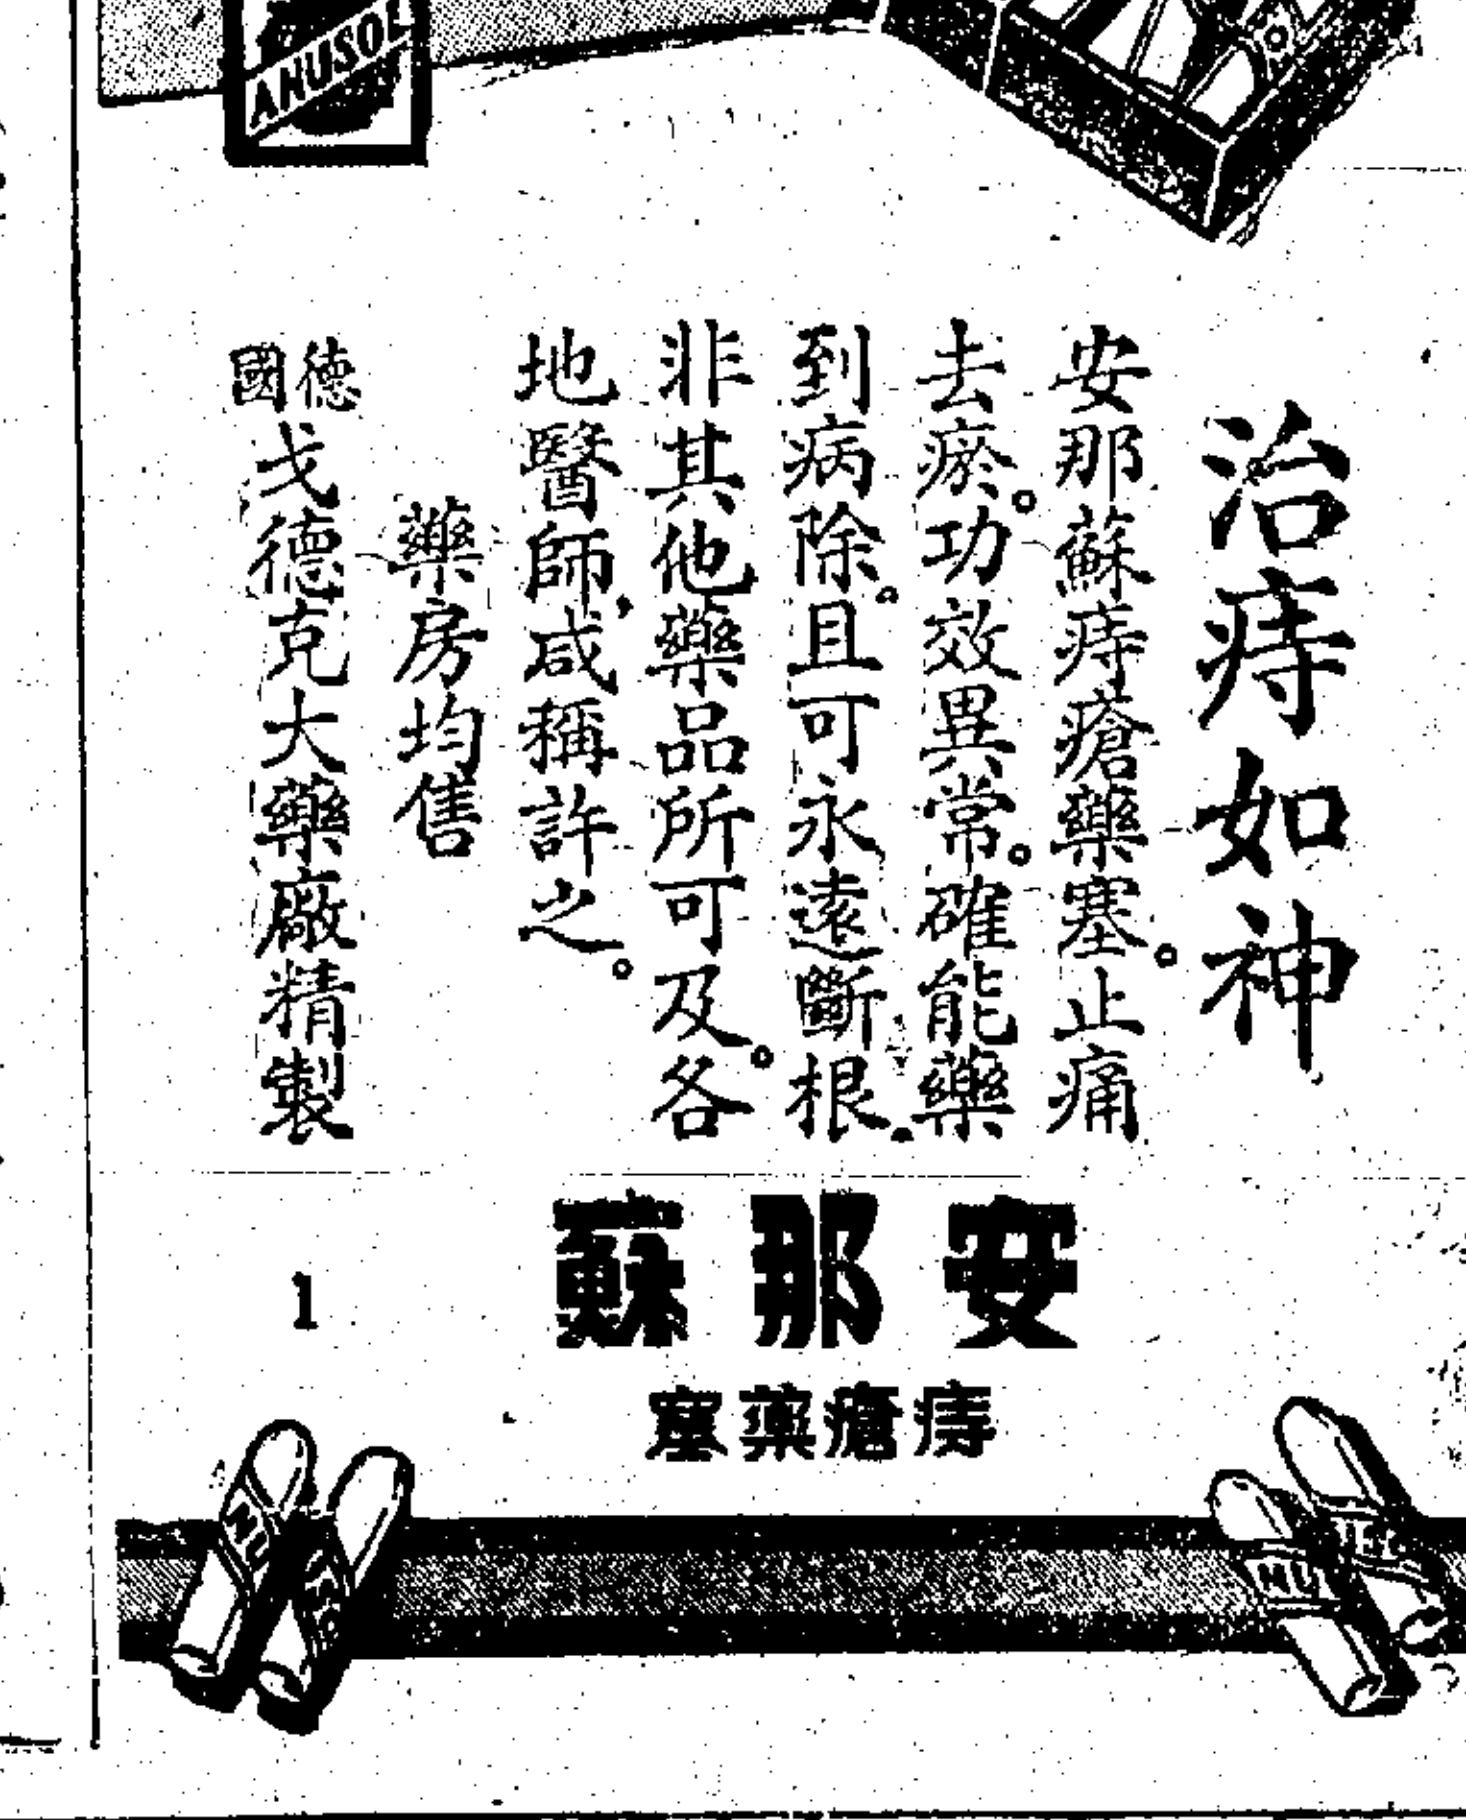 ANUSOL
治痔如神
安那蘇痔瘡藥塞。止痛
去瘀。功效異常。確能藥
到病除。且可永遠斷根。
非其他藥品所可及。各
地醫師,咸稱許之。
藥房均售
德國戈德克大藥廠精製
安那蘇
痔瘡藥塞
1